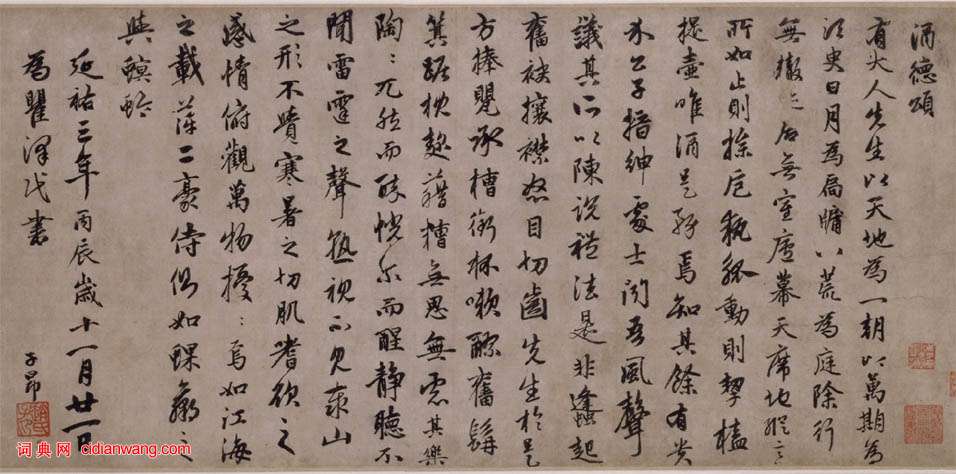 酒德頌
有大人先生以天地為一朝以萬期為
須臾日月為扃牖八荒為庭除行
無轍迹居無室廬幕天席地縱意
所如止則操卮執觚動則挈榼
提壺唯酒是務焉知其餘有貴
介公子搢紳處士聞吾風聲
議其所以陳說禮法是非蠭起
奮袂攘襟怒目切齒先生於是
方捧甖承槽銜杯嗽醪奮髯
箕踞枕麴藉糟無思無慮其樂
陶〻兀然而醉恍尔而醒靜聽不
聞雷霆之聲熟視不見泰山
之形不覺寒暑之切肌嗜欲之
感情俯觀萬物擾〻焉如江海
之載萍二豪侍側如蜾蠃之
與螟蛉
延祐三年丙辰歲十一月廿一日
為瞿澤民書
子昂
词典网 cidianwang.com